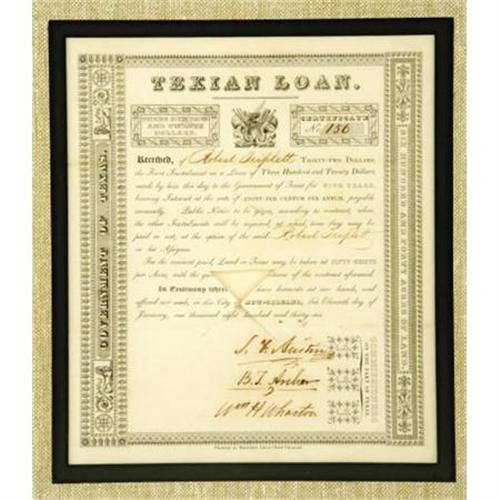 TEXIAN LOAN.
THREE HUNDRED
AND TWENTY
DOLLARS.
CERTIFICATE
No. 136
GOVERNMENT OF TEXAS.
SIX HUNDRED AND FORTY ACRES OF LAND.
Received, of Robert Triplett THIRTY-TWO DOLLARS,
the First Instalment on a Loan of Three Hundred and Twenty Dollars,
made by him this day to the Government of Texas for FIVE YEARS,
bearing Interest at the rate of EIGHT PER CENTUM PER ANNUM, payable
annually. Public Notice to be given, according to contract, when
the other Instalments will be required, at which time they may be
paid or not, at the option of the said Robert Triplett
or his Assigns.
For the amount paid, Land in Texas may be taken at FIFTY CENTS
per Acre, with the of the contract aforesaid.
In Testimony where have hereunto set our hands, and
affixed our seals, in this City of NEW-ORLEANS, this Eleventh day of
January, one thousand eight hundred and thirty-six.
S. F. Austin
B. T. Archer
Wm H Wharton
ON THE PART OF TEXAS.